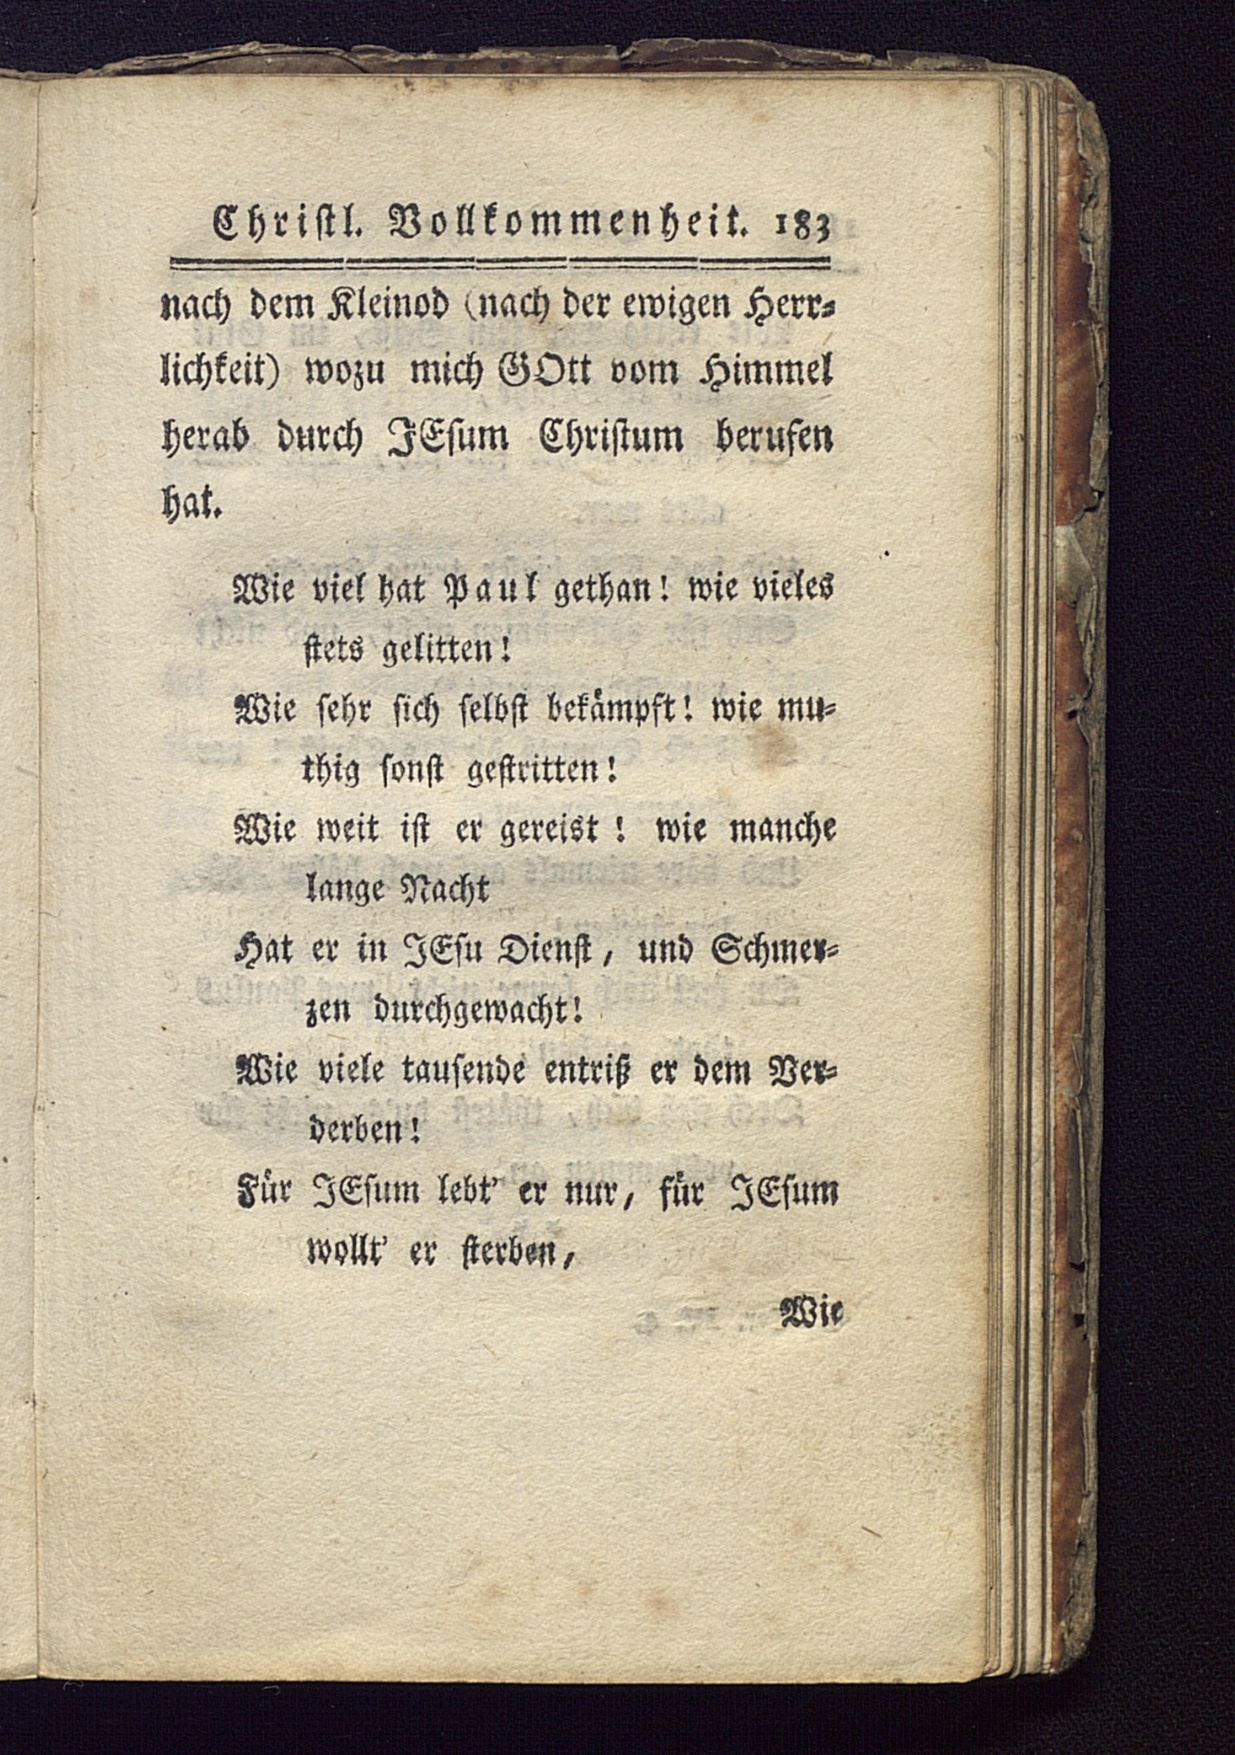 Christl. Vollkommenheit. 183
nach dem Kleinod (nach der ewigen Herr-
lichkeit) wozu mich GOtt vom Himmel
herab durch JEsum Christum berufen
hat.
Wie viel hat Paul gethan! wie vieles
stets gelitten!
Wie sehr sich selbst bekämpft! wie mu-
thig sonst gestritten!
Wie weit ist er gereist! wie manche
lange Nacht
Hat er in JEsu Dienst, und Schmer-
zen durchgewacht!
Wie viele tausende entriß er dem Ver-
derben!
Für JEsum lebt' er nur, für JEsum
wollt' er sterben,
Wie